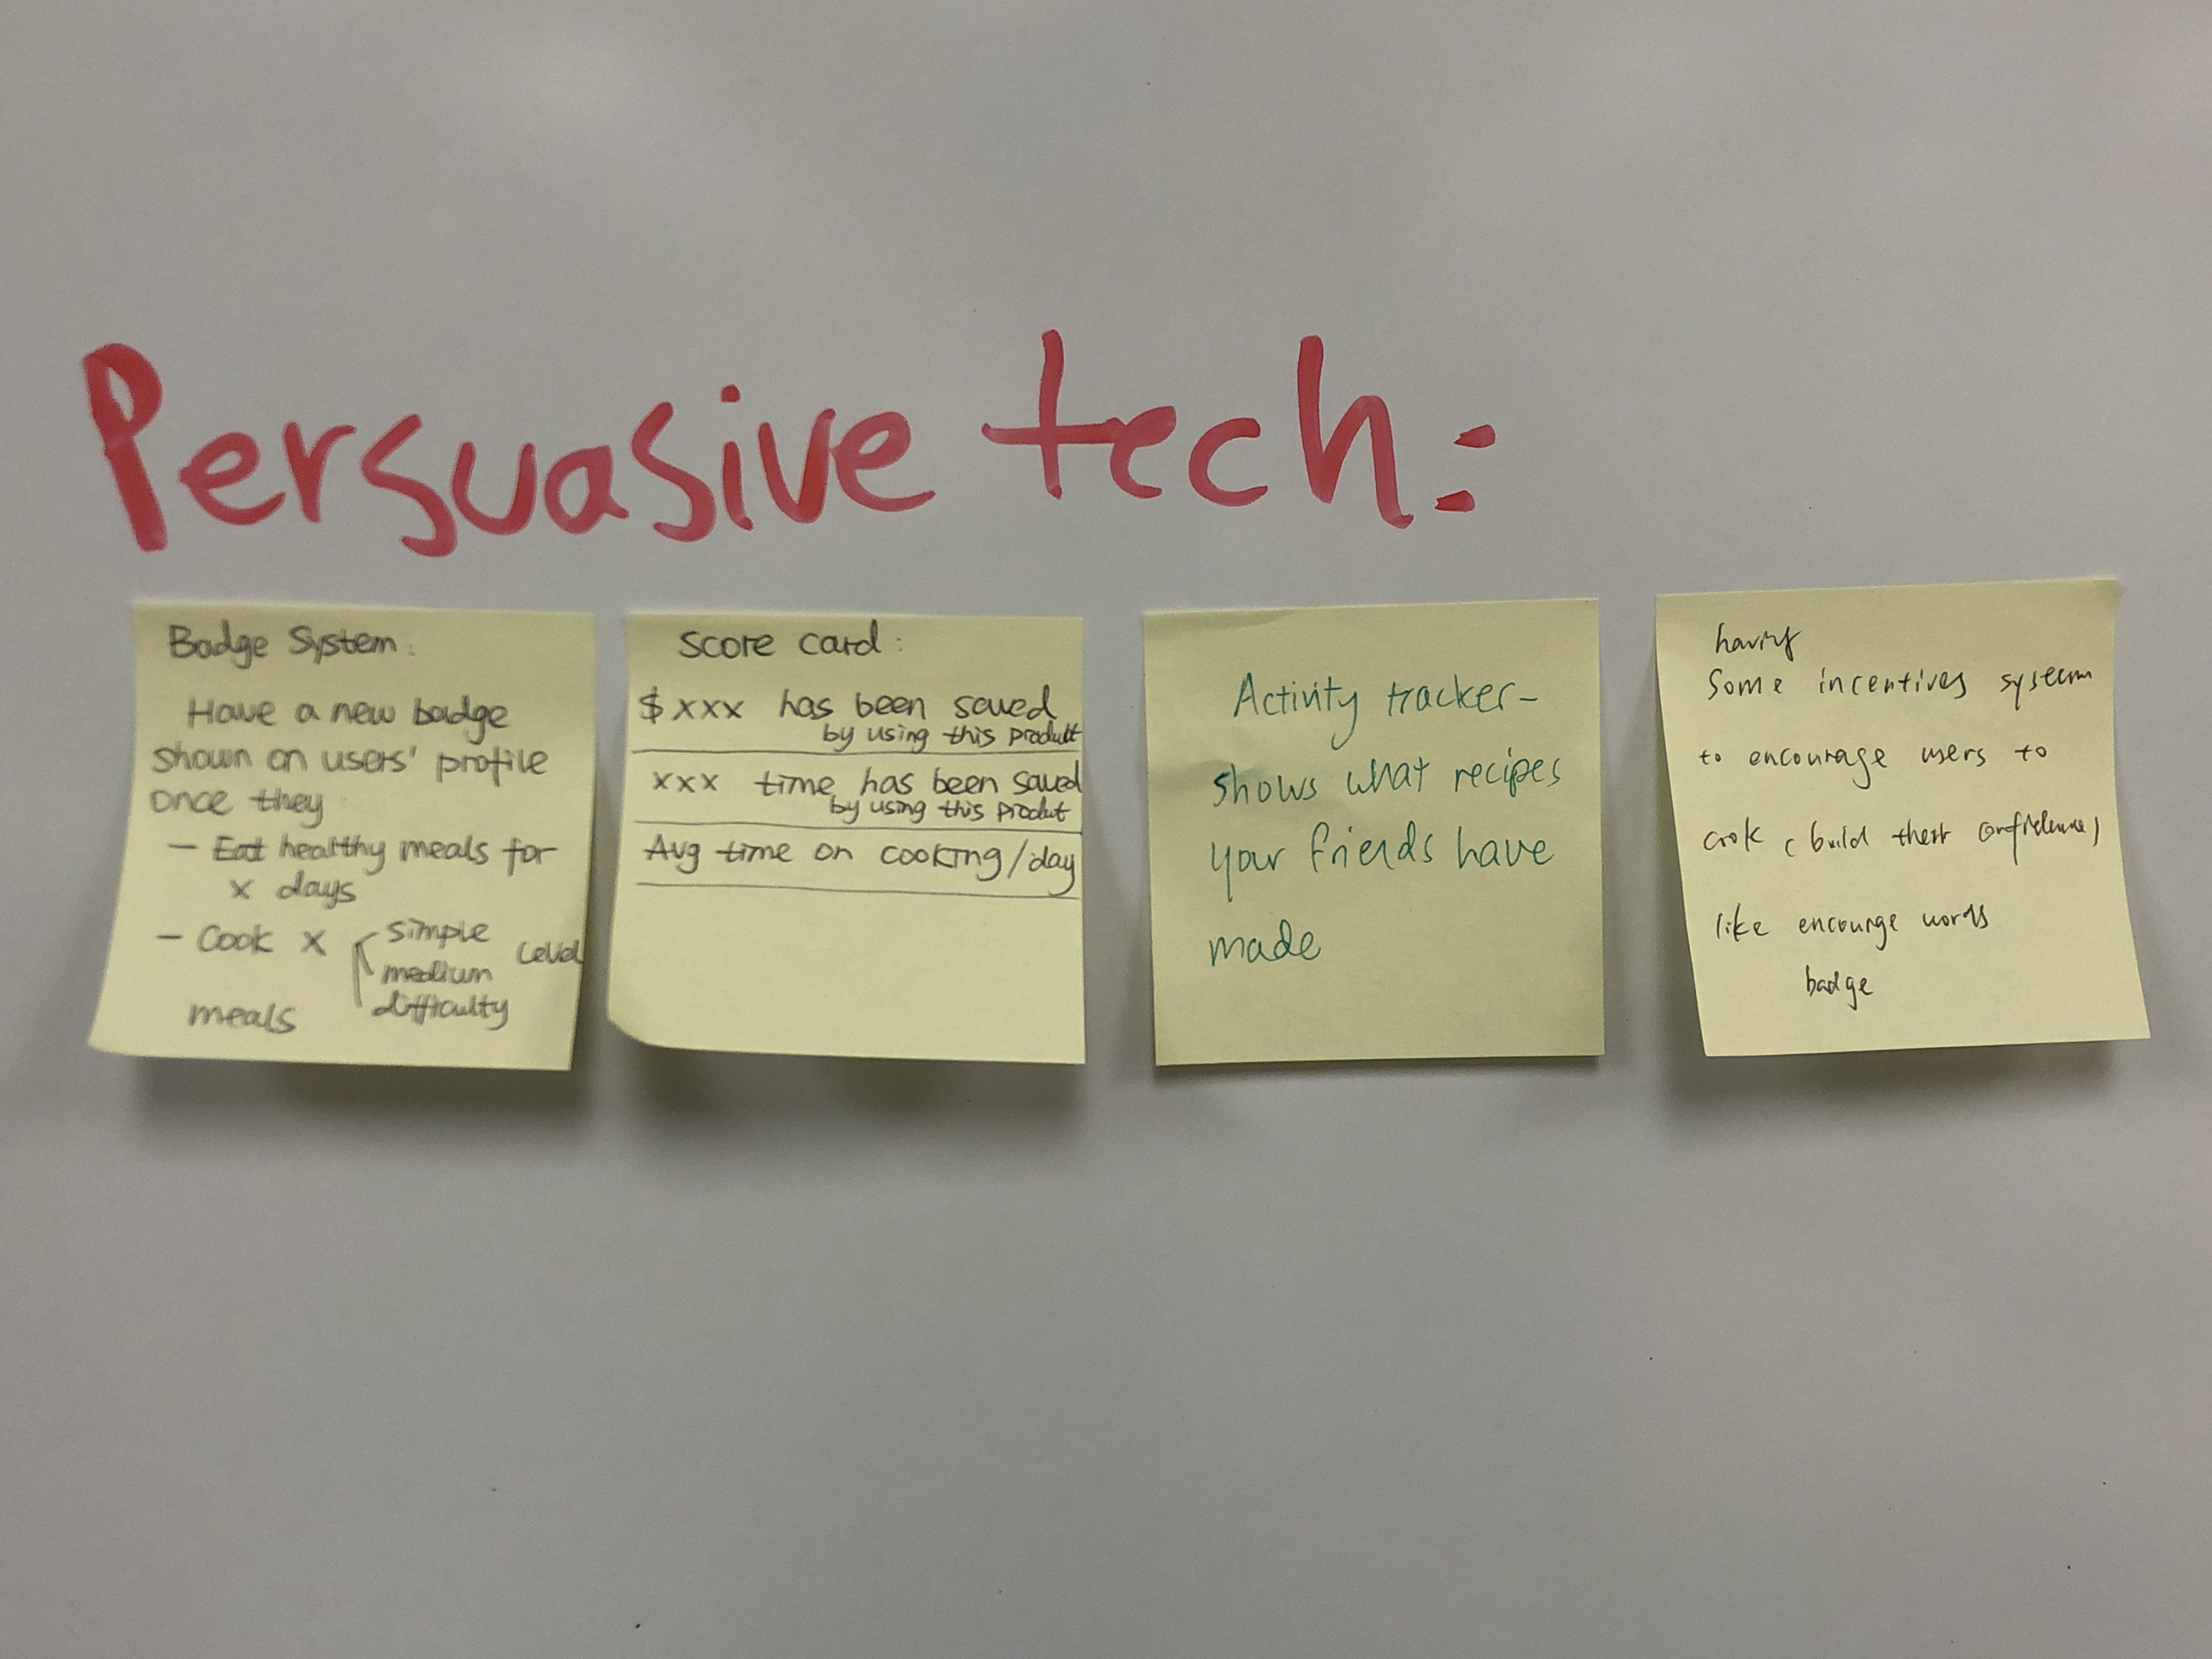 Persuasive tech:
Badge System:
Have a new badge
shown on users' profile
once they
- Eat healthy meals for
x days
- Cook x simple level
medium
difficulty
meals
Score card:
$ xxx has been saved
by using this product
xxx time has been saved
by using this produt
Avg time on cooking/day
Activity tracker-
shows what recipes
your friends have
made
having
Some incentives system
to encourage users to
cook ( build their confidence)
like encourge words
badge